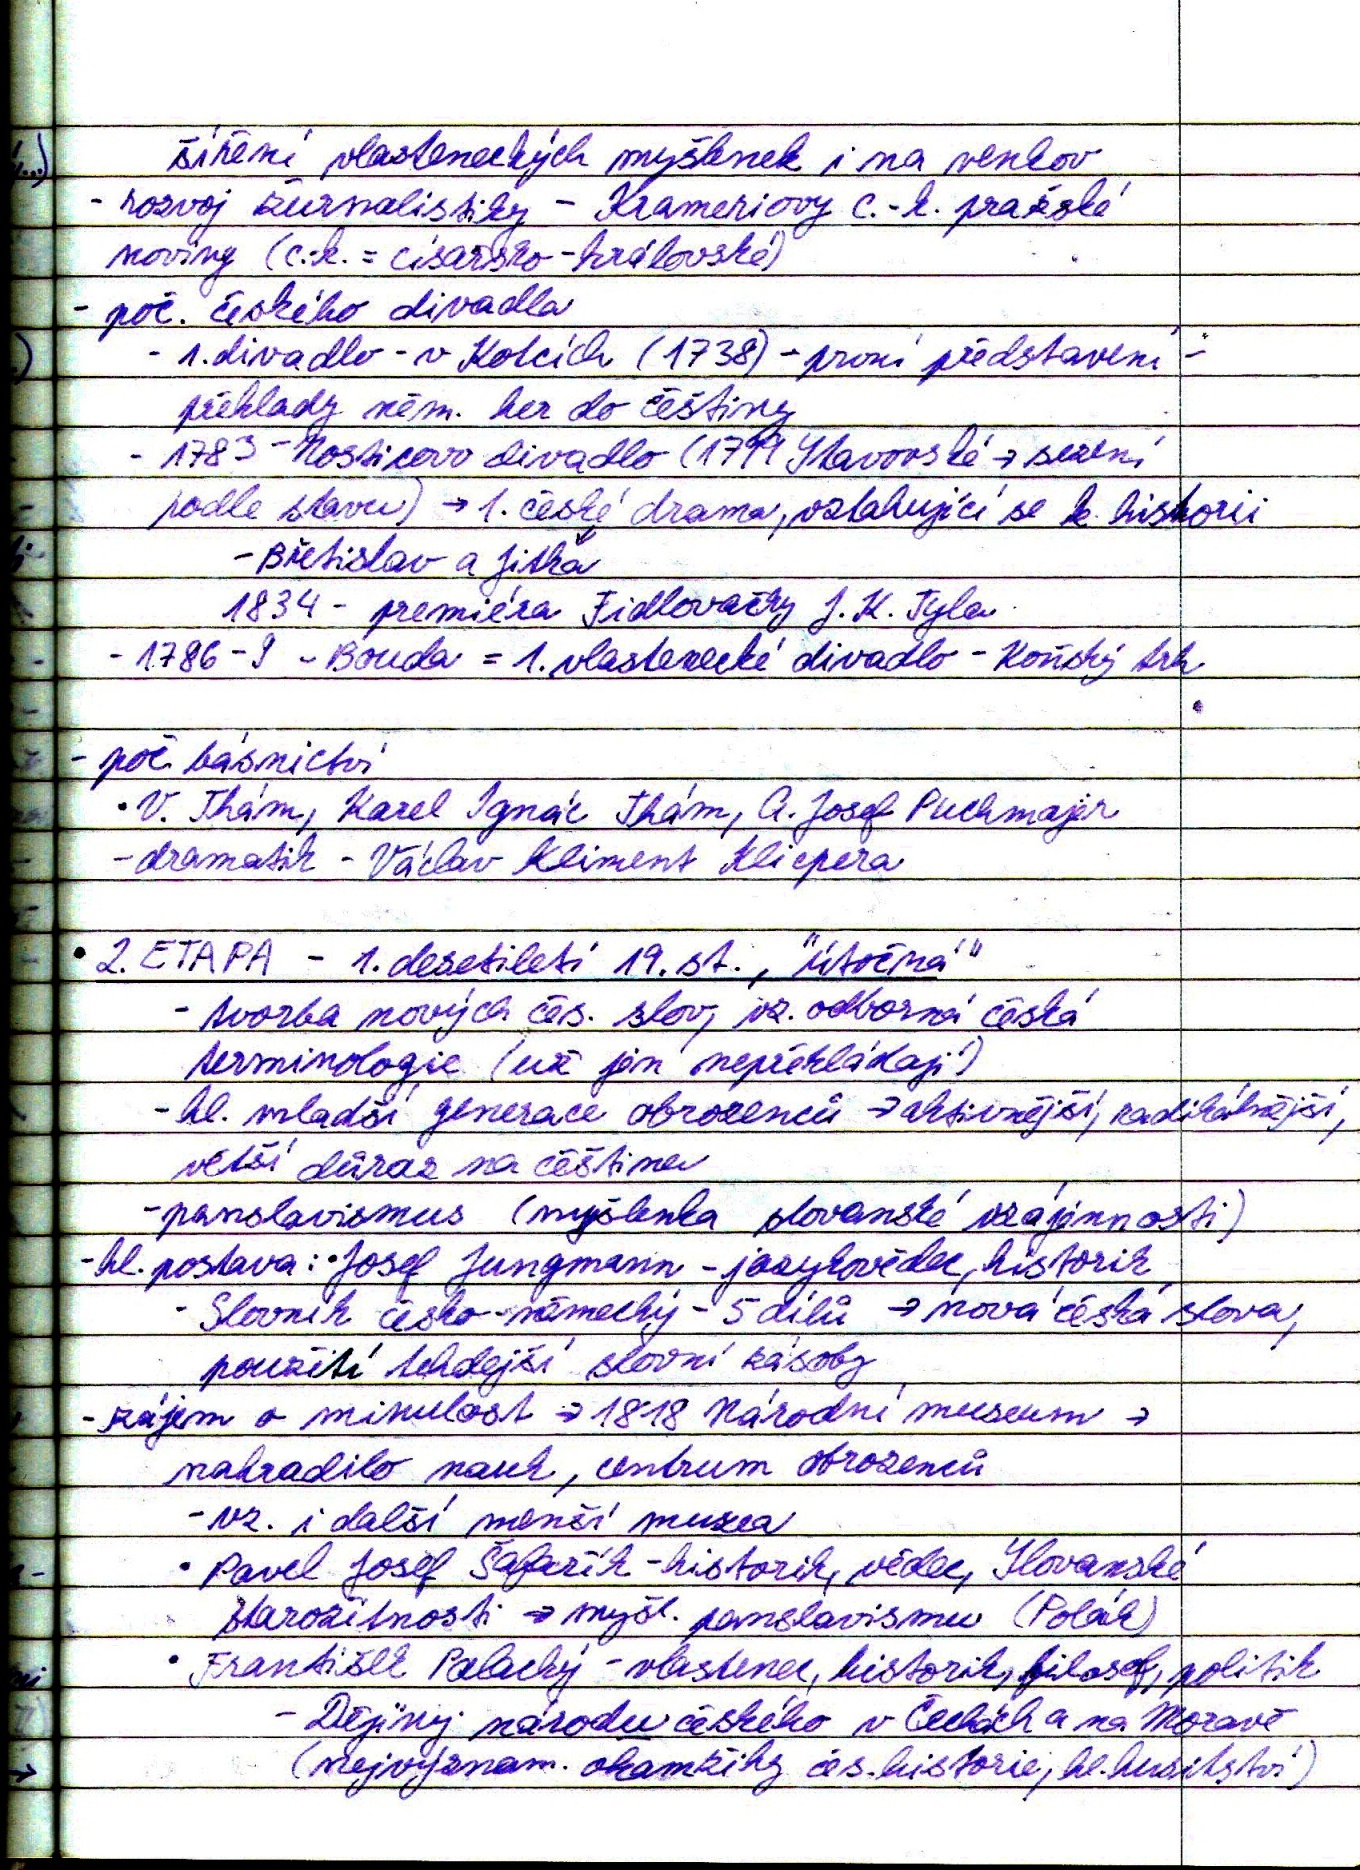 šíření vlasteneckých myšlenek i na venkov
- rozvoj žurnalistiky - Krameriovy c.-k. pražské
noviny (c.-k. = císařsko-královské)
- poč. českého divadla
- 1. divadlo - v Kotcích (1738) - první představení -
překlady něm. her do češtiny
- 1783 - Nosticovo divadlo (1799 Stavovské → sezení
podle stavu) → 1. české drama, vztahující se k historii
- Břetislav a Jitka
1834 - premiéra Fidlovačky J. K. Tyla
- 1786 - 9 - Bouda = 1. vlastenecké divadlo - Koňský trh
- poč. básnictví
• V. Thám, Karel Ignác Thám, A. Josef Puchmajer
- dramatik - Václav Kliment Klicpera
• 2. ETAPA - 1. desetiletí 19. st., "útočná"
- tvorba nových čes. slov, vz. odborná česká
terminologie (už jen nepřekládají)
- hl. mladší generace obrozenců → aktivnější, radikálnější,
větší důraz na češtinu
- panslavismus (myšlenka slovanské vzájemnosti)
- hl. postava: • Josef Jungmann - jazykovědec, historik
- Slovník česko-německý - 5 dílů → nová česká slova,
použití tehdejší slovní zásoby
- zájem o minulost → 1818 Národní museum →
nahradilo nauk, centrum obrozenců
- vz. i další menší muzea
• Pavel Josef Šafařík - historik, vědec, Slovanské
starožitnosti → myšl. panslavismu (Polák)
• František Palacký - vlastenec, historik, filosof, politik
- Dějiny národu českého v Čechách a na Moravě
(nejvýznam. okamžiky čes. historie, hl. husitství)